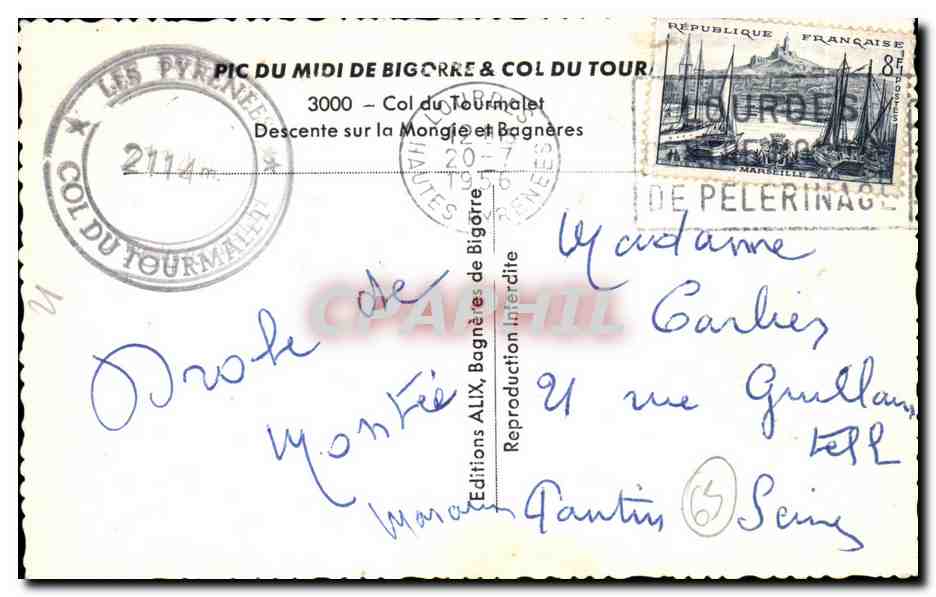 PIC DU MIDI DE BIGORRE & COL DU TOUR
3000 - Col du Tourmalet
Descente sur la Mongie et Bagnères
LES PYRENEES
2114 m.
COL DU TOURMALET
LOURDES
12 H
20-7
1956
HAUTES PYRENEES
REPUBLIQUE FRANÇAISE
8F
POSTES
MARSEILLE
LOURDES
DE PELERINAGE
Drole de
Montée
Madame
Carlier
21 rue Guillaume
Tell
Pantin Seine
65
Editions ALIX, Bagnères de Bigorre
Reproduction Interdite
CPAPHIL